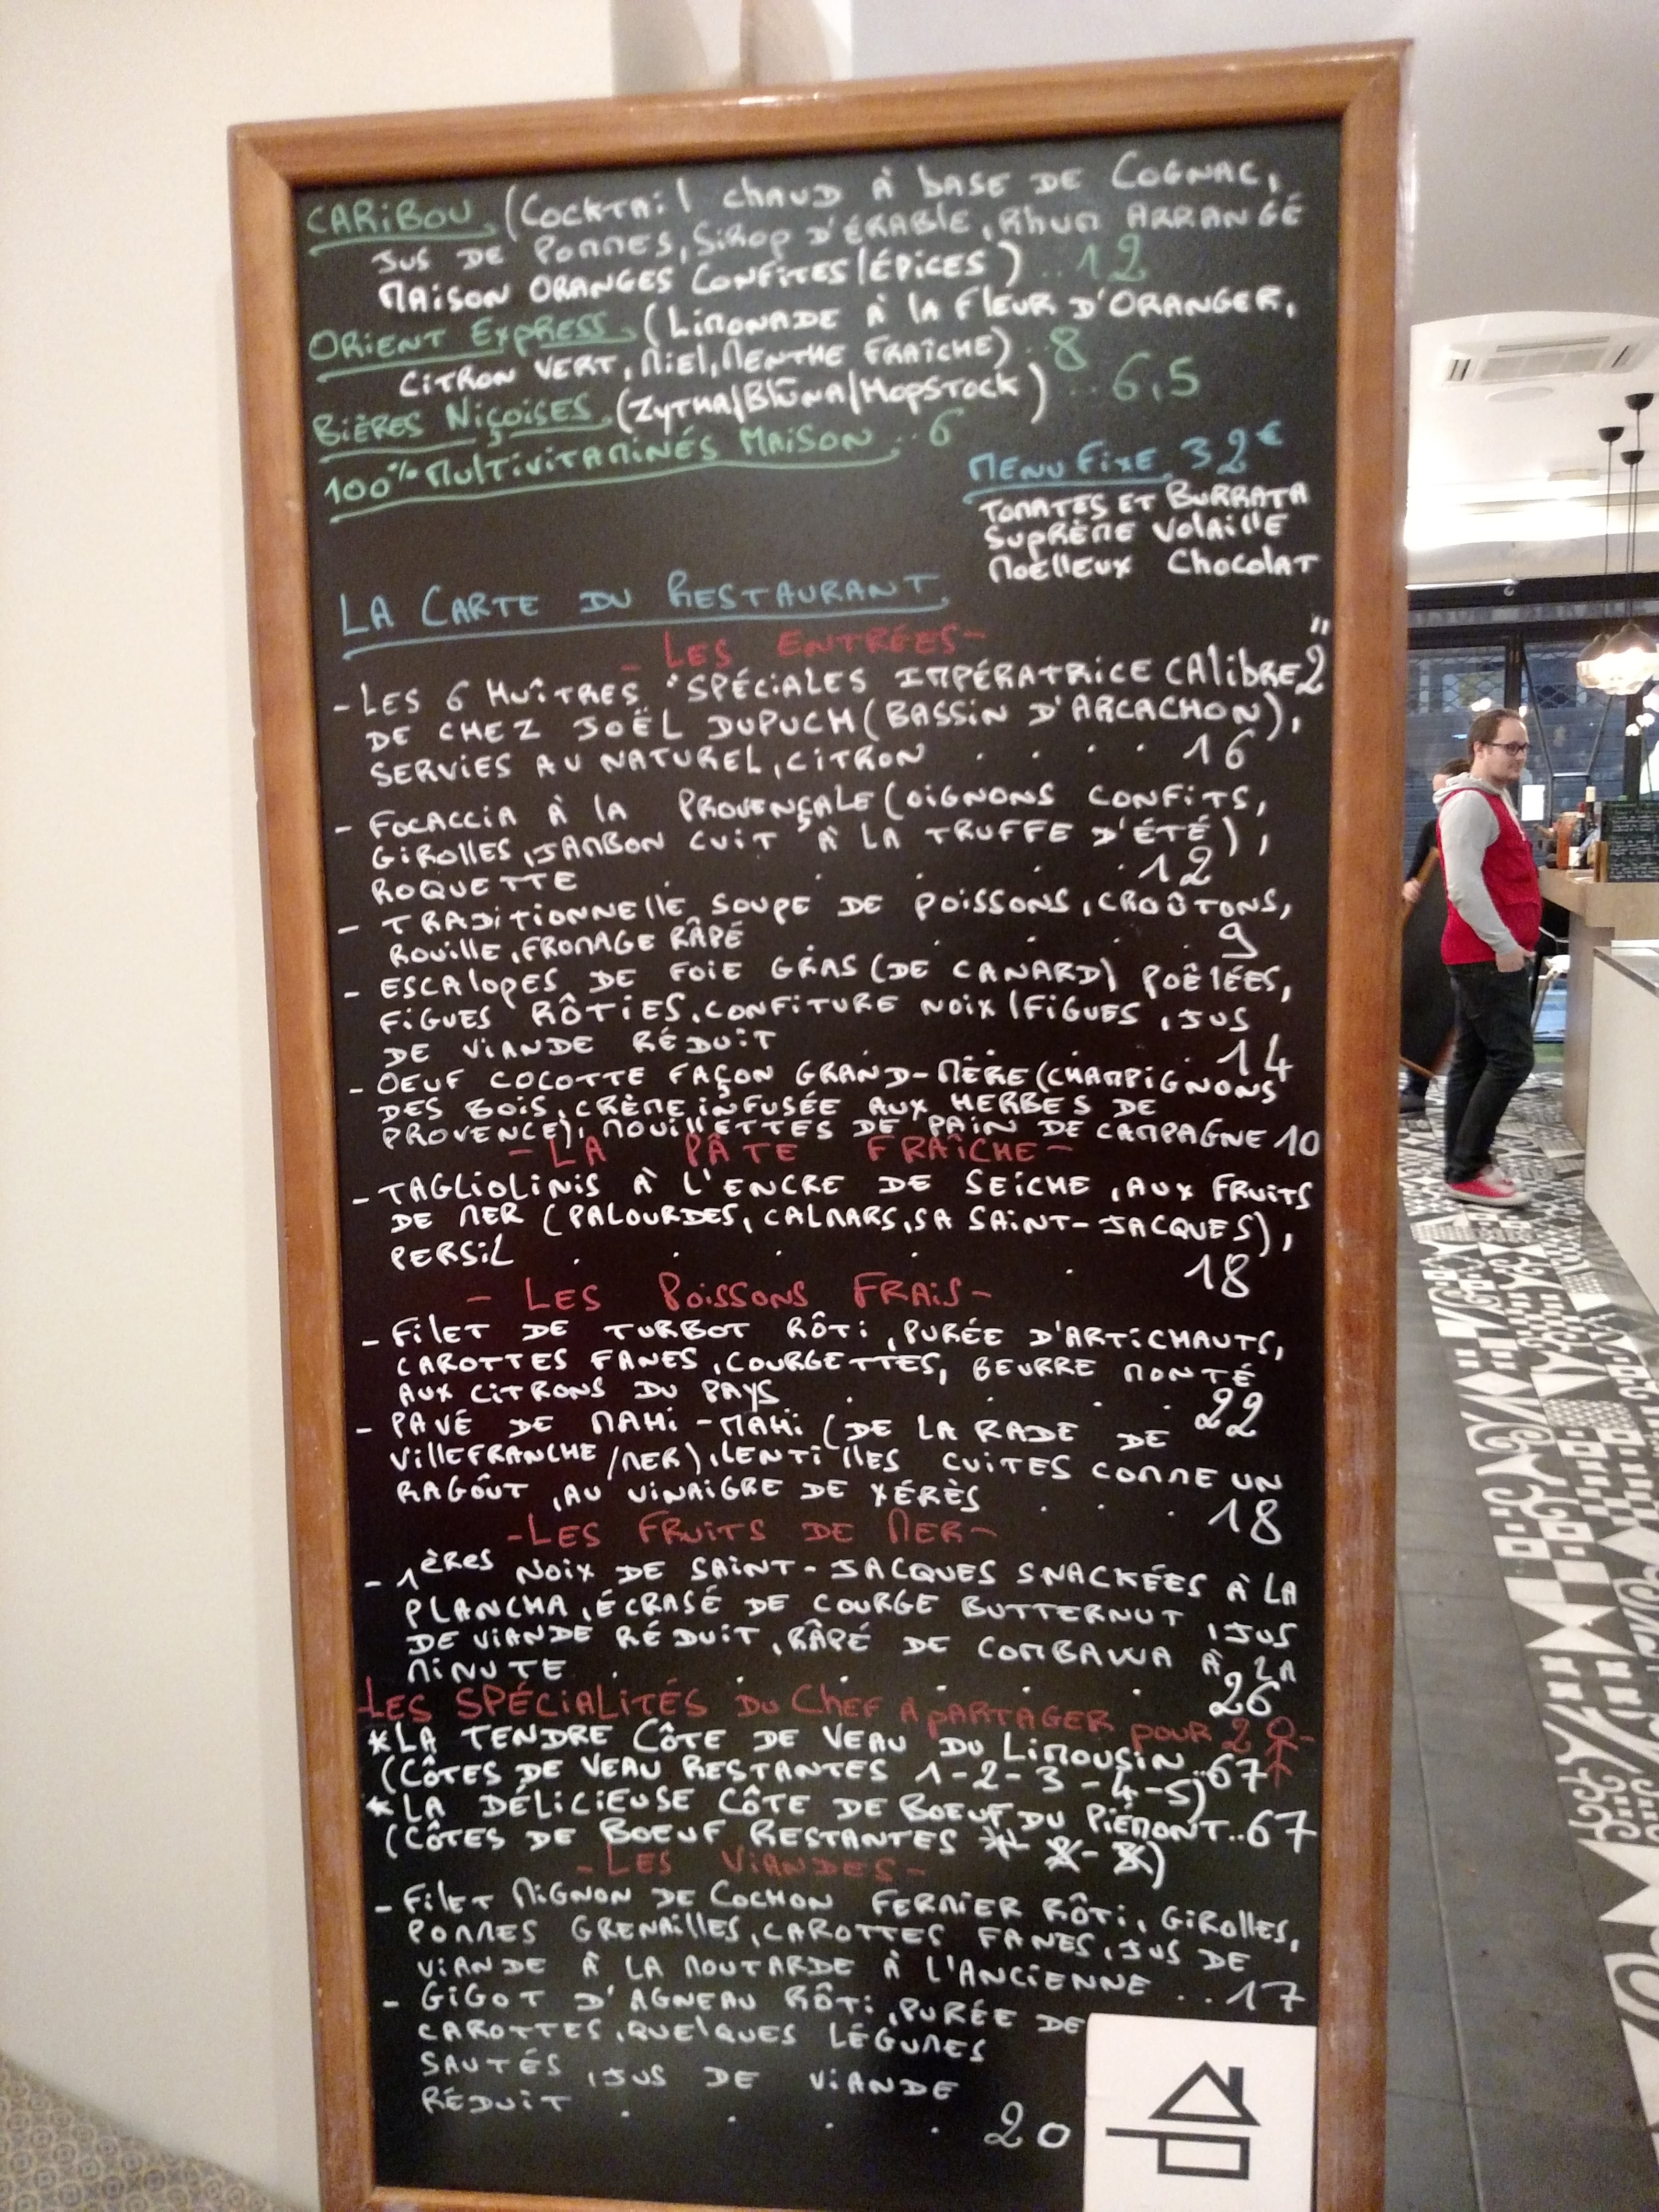 CARIBOU (COCKTAIL CHAUD À BASE DE COGNAC,
JUS DE POMMES, SIROP D'ÉRABLE, RHUM ARRANGÉ
MAISON ORANGES CONFITES/ÉPICES) .. 12
ORIENT EXPRESS (LIMONADE À LA FLEUR D'ORANGER,
CITRON VERT, MIEL, MENTHE FRAÎCHE) .. 8
BIÈRES NIÇOISES (ZYTHA/BLŪNA/HOPSTOCK) .. 6,5
100% MULTIVITAMINÉS MAISON .. 6
MENU FIXE 32€
TOMATES ET BURRATA
SUPRÈME VOLAILLE
MOËLLEUX CHOCOLAT
LA CARTE DU RESTAURANT
- LES ENTRÉES -
- LES 6 HUÎTRES "SPÉCIALES IMPÉRATRICE CALIBRE 2"
DE CHEZ JOËL DUPUCH (BASSIN D'ARCACHON),
SERVIES AU NATUREL, CITRON . . . . 16
- FOCACCIA À LA PROVENÇALE (OIGNONS CONFITS,
GIROLLES, JAMBON CUIT À LA TRUFFE D'ÉTÉ),
ROQUETTE . . . . 12
- TRADITIONNELLE SOUPE DE POISSONS, CROÛTONS,
ROUILLE, FROMAGE RÂPÉ . . . . 9
- ESCALOPES DE FOIE GRAS (DE CANARD) POÊLÉES,
FIGUES RÔTIES, CONFITURE NOIX/FIGUES, JUS
DE VIANDE RÉDUIT . . . . 14
- OEUF COCOTTE FAÇON GRAND-MÈRE (CHAMPIGNONS
DES BOIS, CRÈME INFUSÉE AUX HERBES DE
PROVENCE), MOUILLETTES DE PAIN DE CAMPAGNE 10
- LA PÂTE FRAÎCHE -
- TAGLIOLINIS À L'ENCRE DE SEICHE, AUX FRUITS
DE MER (PALOURDES, CALMARS, SA SAINT-JACQUES),
PERSIL . . . . . 18
- LES POISSONS FRAIS -
- FILET DE TURBOT RÔTI, PURÉE D'ARTICHAUTS,
CAROTTES FANES, COURGETTES, BEURRE MONTÉ
AUX CITRONS DU PAYS . . . . 22
- PAVÉ DE MAHI-MAHI (DE LA RADE DE
VILLEFRANCHE/MER), LENTILLES CUITES COMME UN
RAGÔUT, AU VINAIGRE DE XÉRÈS . . . 18
- LES FRUITS DE MER -
- 1ÈRES NOIX DE SAINT-JACQUES SNACKÉES À LA
PLANCHA, ÉCRASÉ DE COURGE BUTTERNUT, JUS
DE VIANDE RÉDUIT, RÂPÉ DE COMBAWA À LA
MINUTE . . . . . 26
LES SPÉCIALITÉS DU CHEF A PARTAGER POUR 2 -
*LA TENDRE CÔTE DE VEAU DU LIMOUSIN .. 67
(CÔTES DE VEAU RESTANTES 1-2-3-4-5)
*LA DÉLICIEUSE CÔTE DE BOEUF DU PIÉMONT .. 67
(CÔTES DE BOEUF RESTANTES
- LES VIANDES -
- FILET MIGNON DE COCHON FERMIER RÔTI, GIROLLES,
POMMES GRENAILLES, CAROTTES FANES, JUS DE
VIANDE À LA MOUTARDE À L'ANCIENNE .. 17
- GIGOT D'AGNEAU RÔTI, PURÉE DE
CAROTTES, QUELQUES LÉGUMES
SAUTÉS, JUS DE VIANDE
RÉDUIT . . . 20